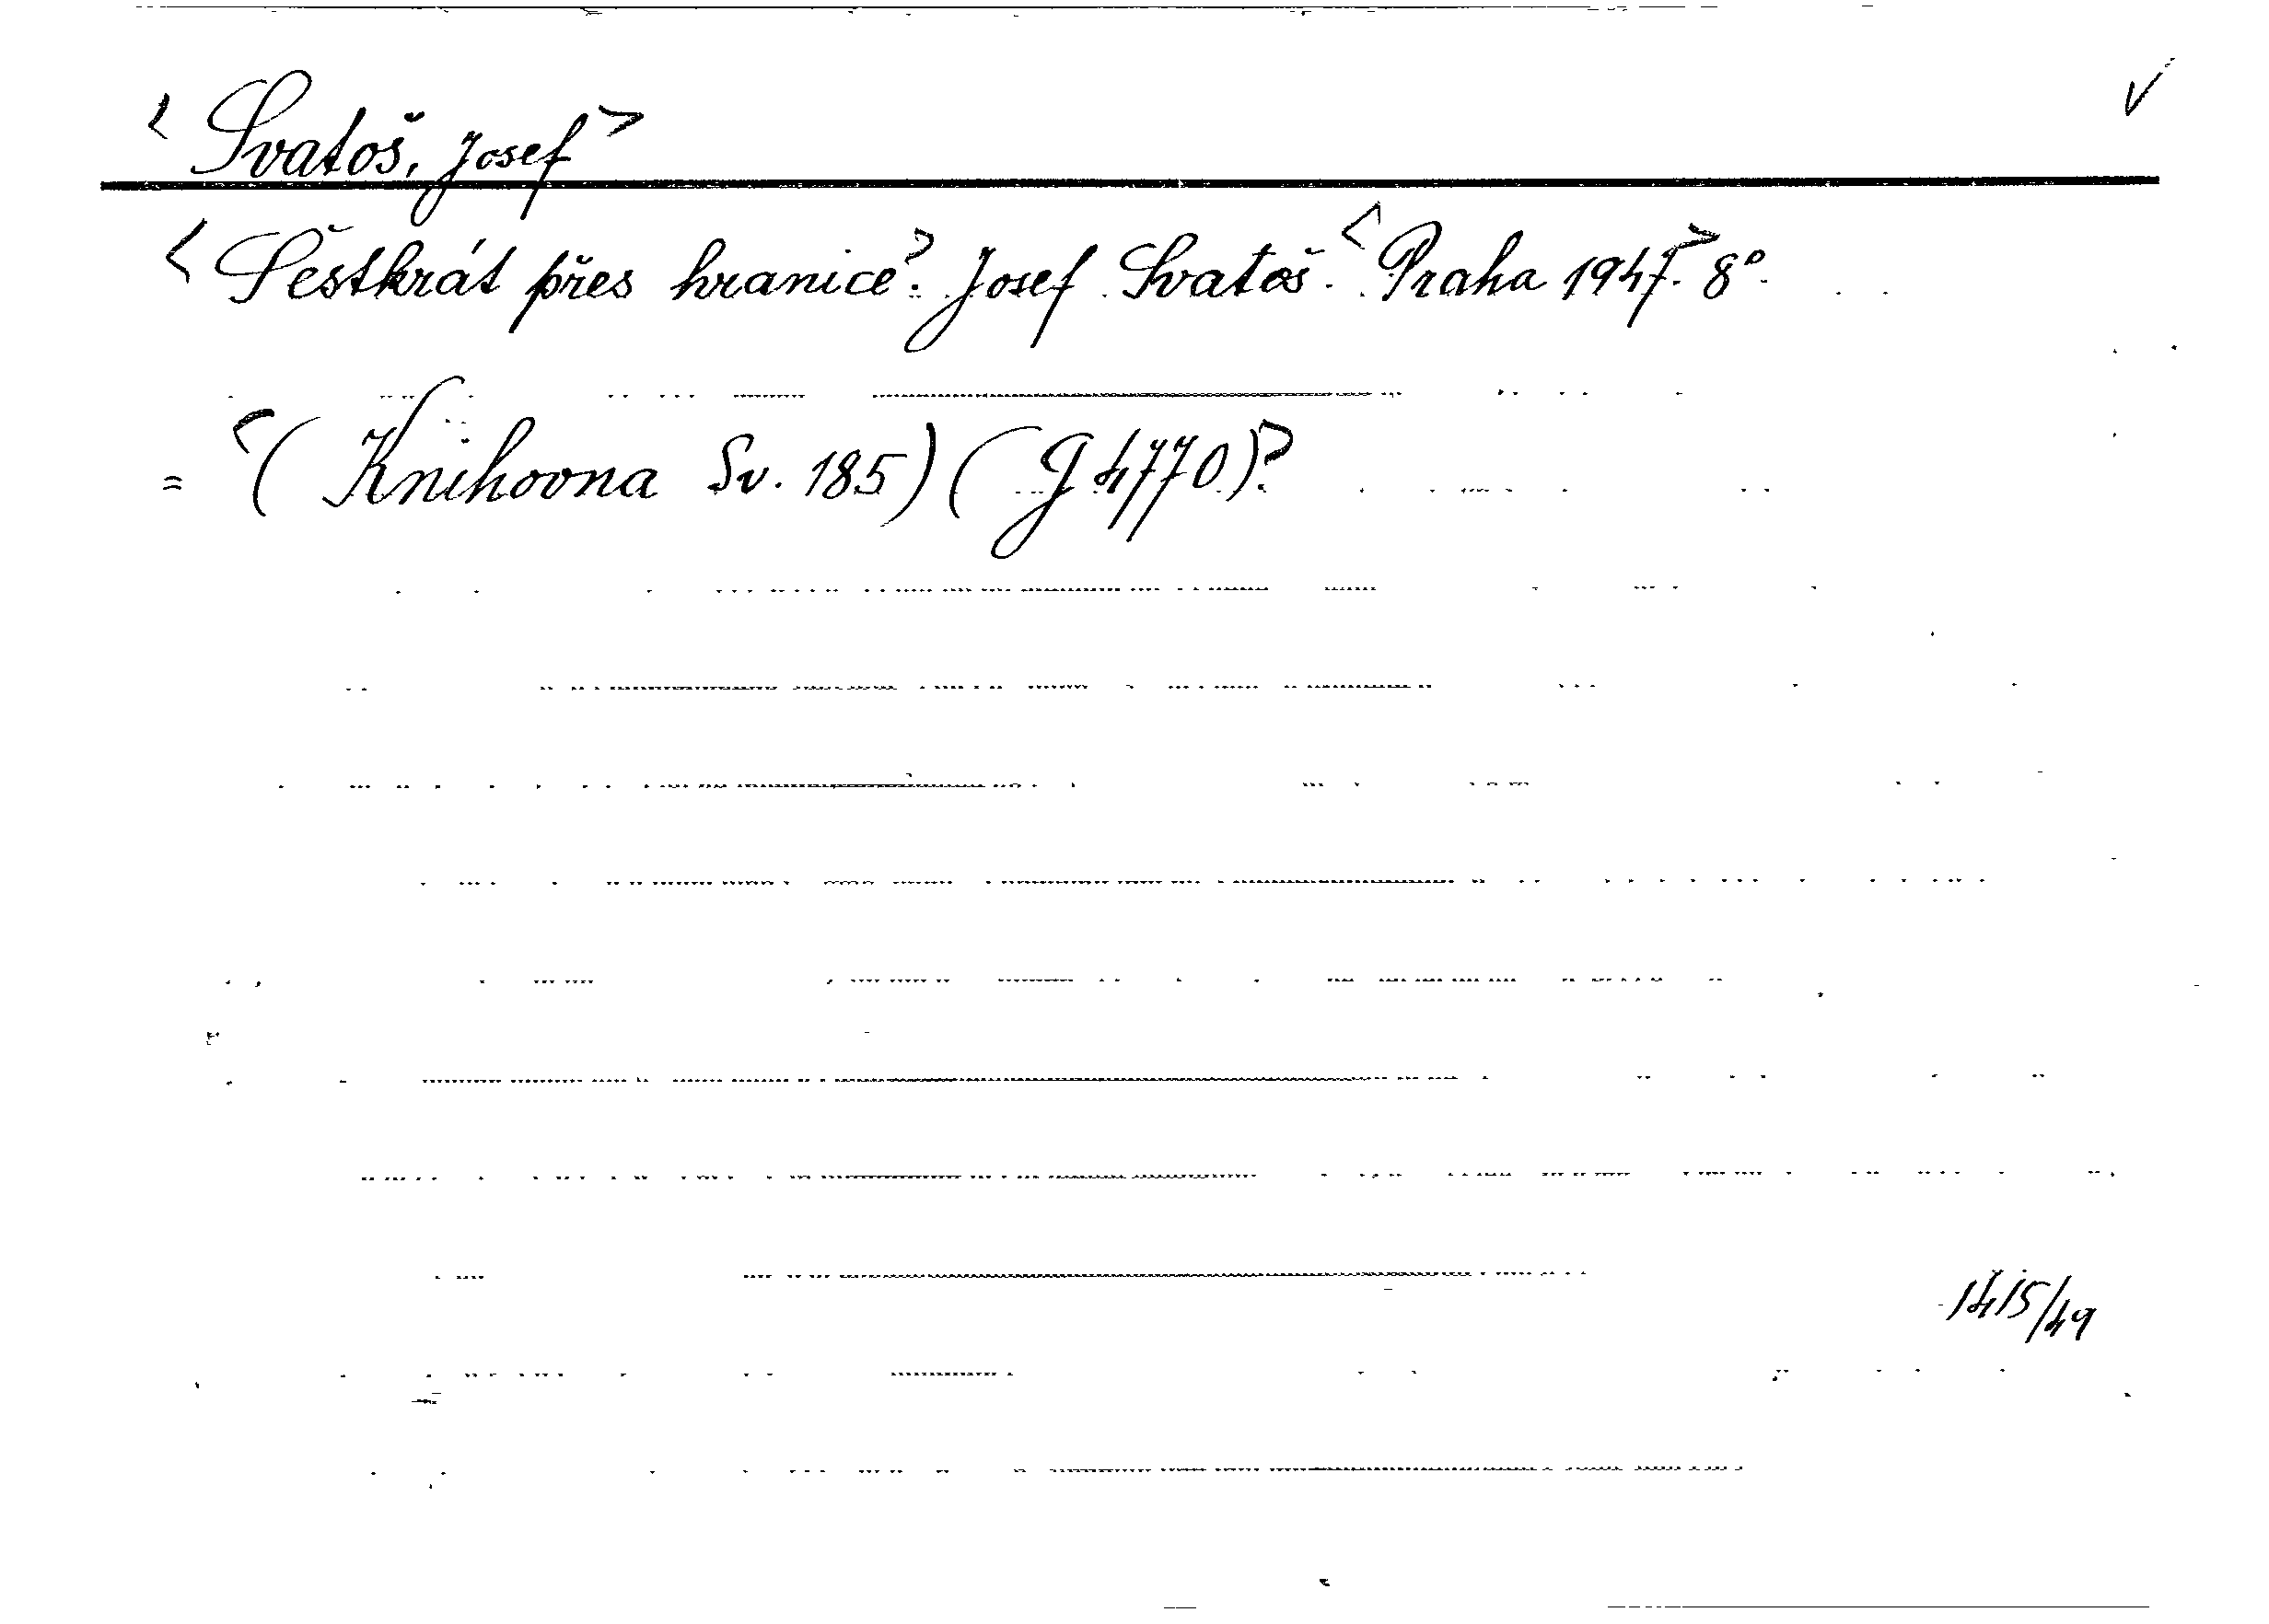 < Svatoš, Josef > √
< Šestkrát přes hranice >. Josef Svatoš. < Praha 1947. > 8°.
= < ( Knihovna Sv. 185) ( G 4770) >.
1415/49